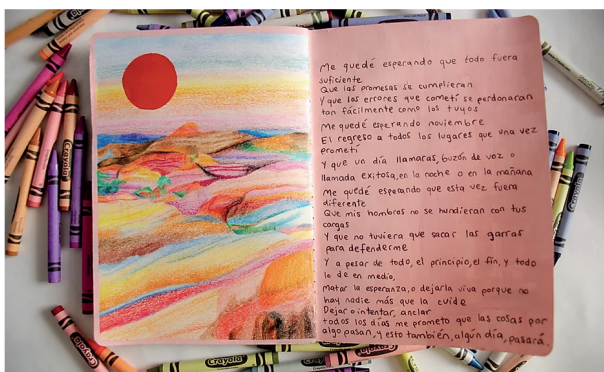 Me quedé esperando que todo fuera
suficiente
Que las promesas se cumplieran
Y que los errores que cometí se perdonaran
tan fácilmente como los tuyos
Me quedé esperando noviembre
El regreso a todos los lugares que una vez
prometí
Y que un día llamaras, buzón de voz o
llamada exitosa, en la noche o en la mañana
Me quedé esperando que esta vez fuera
diferente
Que mis hombros no se hundieran con tus
cargas
Y que no tuviera que sacar las garras
para defenderme
Y a pesar de todo, el principio, el fin, y todo
lo de en medio,
Matar la esperanza, o dejarla viva porque no
hay nadie más que la cuide
Dejar o intentar, anclar
todos los días me prometo que las cosas por
algo pasan, y esto también, algún día, pasará.
Crayola
Crayola
Crayola
Crayola
Crayola